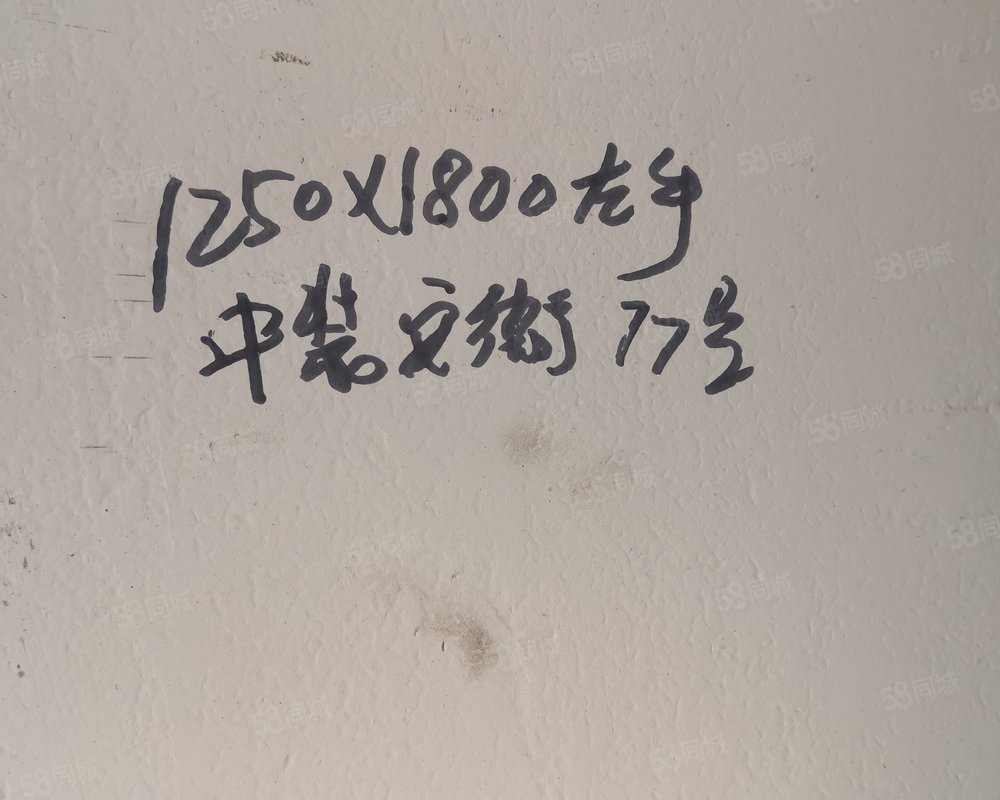 1250X1800左手
中装 文德 77号
58同城